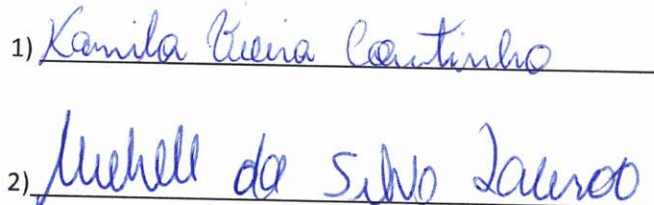 1) Kamila Vieira Coutinho
2) Michell da Silva